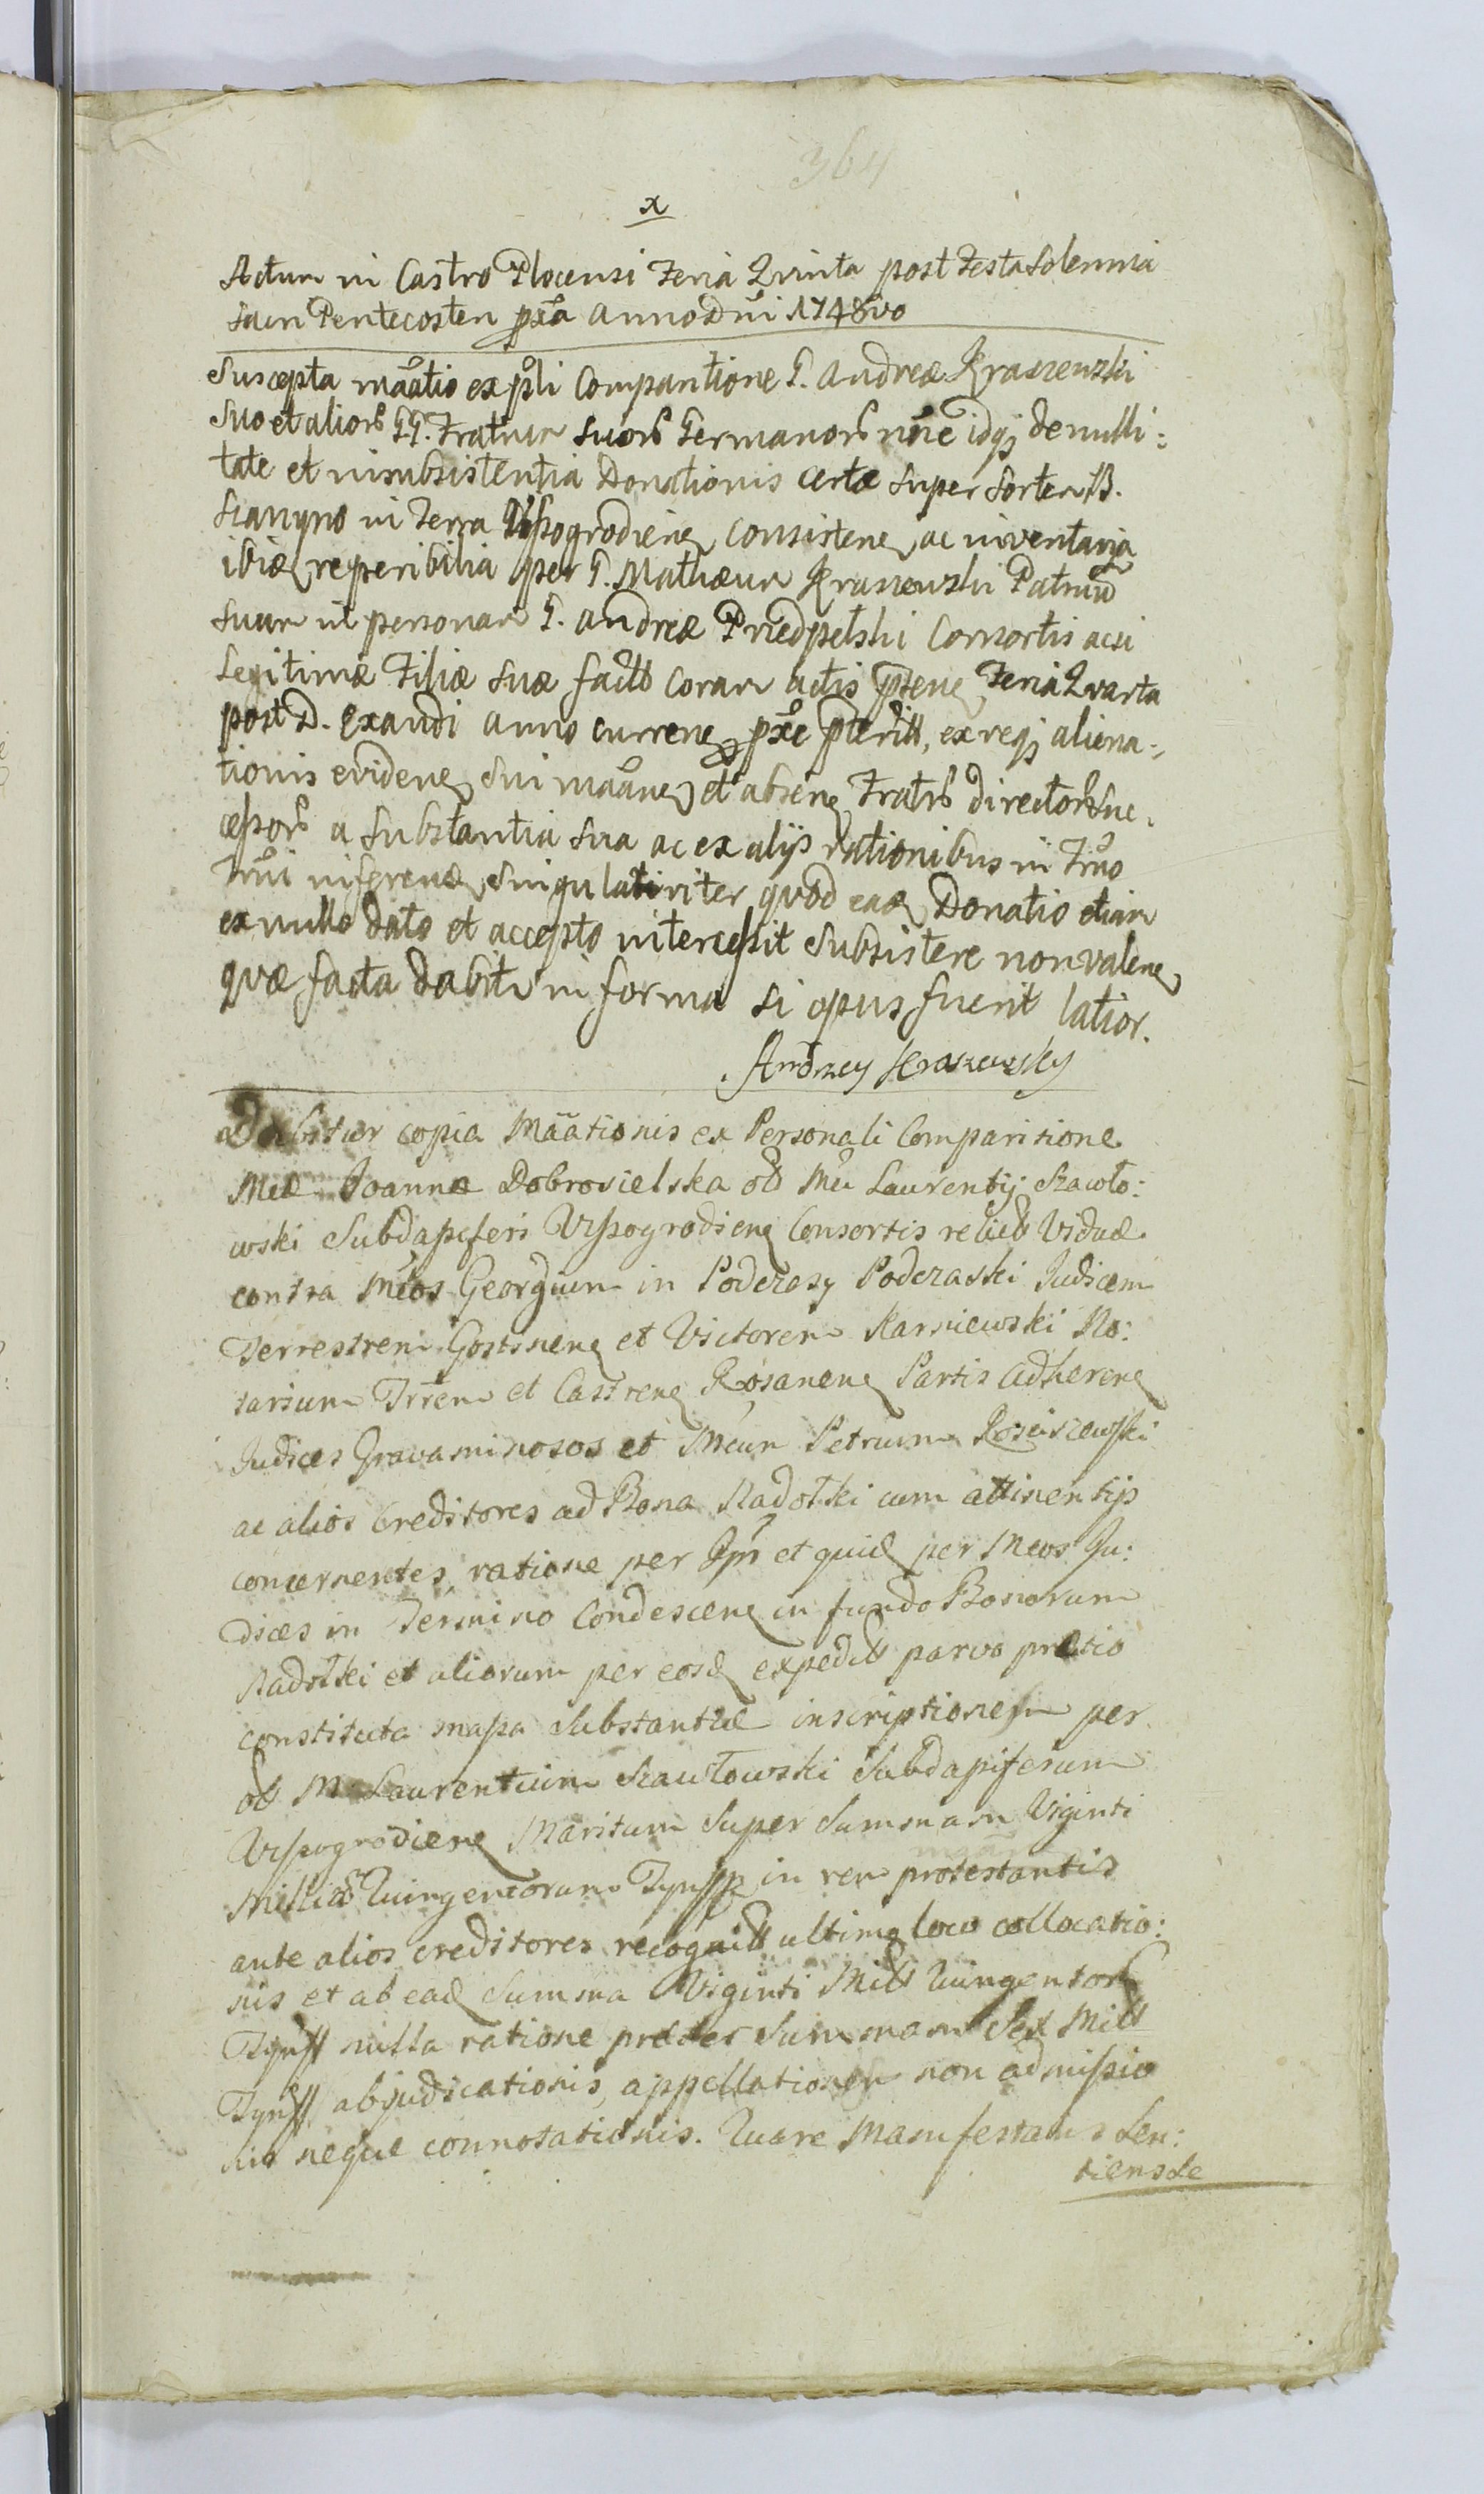 364
x
Actum in Castro Plocensi Feria Qvinta post Festa Solennia
Sacri Pentecosten pxa Anno Dni 1748vo
Suscepta maatio ex pli Comparitione G. Andreæ Kraszewski
Suo et alior GG. Fratrum Suor Germanor nne idq de nulli:
tate et insubsistentia Donationis certæ super Sortem B.
in Terra Wyszogrodien consisten ac inventaria
ibid reperibilia per G. Mathæum Kraszewski Patruu
Suum in personam G. Andreæ Przedpelski Consortis acsi
Legitimæ Filiæ Suæ fact coram actis psen Feria Qvarta
post D. Exaudi anno curren pxe pterit, ex req aliena:
tionis eviden Sui maan et absen Fratr director Suc:
cessor a Substantia Sua ac ex alijs rationibus in Trno
Trni inferend Singulariter qvod ead Donatio etiam
ex nullo dato et accepto intercessit Subsistere non valen
qvæ facta dabit in forma si opus fuerit latior.
Andrzey Kraszewsky
Dabitur copia Maationis ex Personali Comparitione
Mcæ Joannæ Dobrosielska ol Mci Laurentij Szawło:
wski Subdapiferi Wyszogrodien Consortis relict Viduæ
contra Mcos Georgium in Podczasy Podczaski Judicem
Terrestrem Gostinen et Victorem Karniewski No:
tarium Trrem et Castren Rosanen Partis adheren
Judices Gravaminosos et Mcum Petrum Rosciszewski
ac alios Creditores ad Bona Radotki cum attinentijs
concernentes, ratione per Jpm et quid per Mcos Ju:
dices in Termino Condescen in fundo Bonorum
Radotki et aliorum per eosd expedit parvo prætio
constituta massa Substantiæ inscriptionem per
ol M Laurentium Szawłowski Subdapiferum
Wyszogrodien Maritum Super Summam Viginti
Millia Quingentorum Tynff in rem protestantis
ante alios creditores recognit ultimo loco collocatio:
nis et ab ead Summa Viginti Mill Quingentor
Tynff nulla ratione præter Summam Sex Mill
Tynff abjudicationis, appellationem non admissio
nis neque connotationis. Quare Manifestans Sen:
tiens se